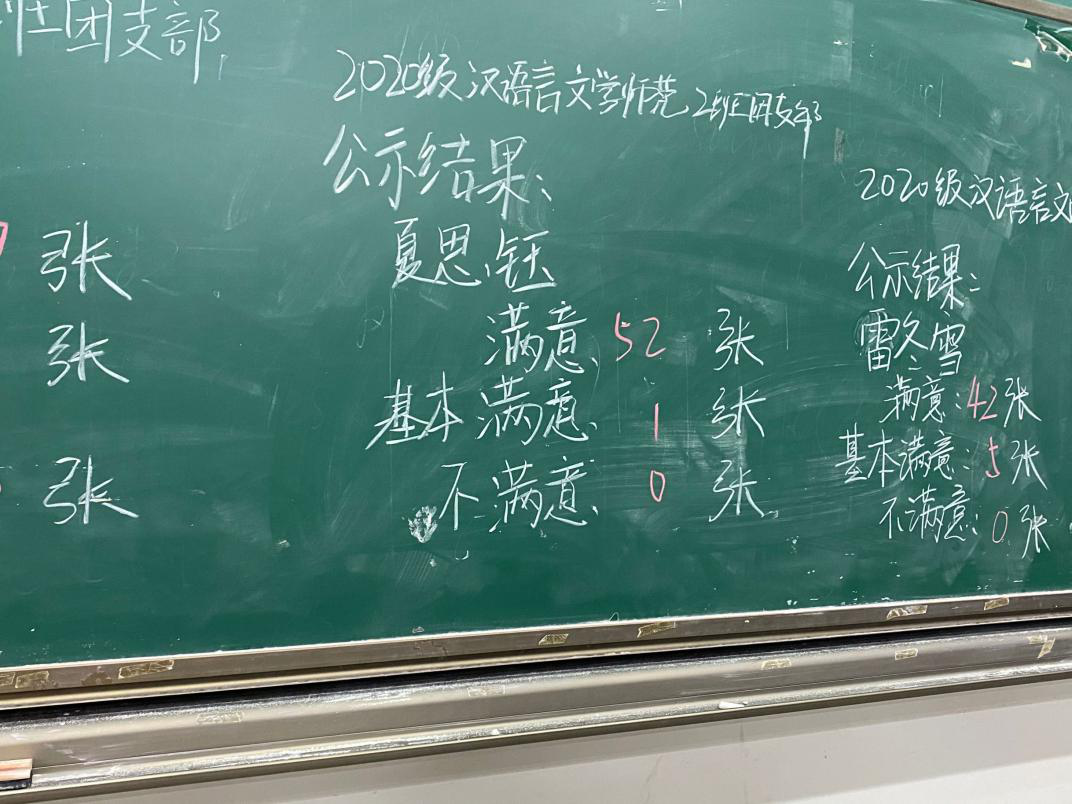 班团支部
张
张
张
2020级汉语言文学师范2班团支部
公示结果:
夏思钰
满意: 52 张
基本满意: 1 张
不满意: 0 张
2020级汉语言文
公示结果:
雷冬雪
满意:42张
基本满意:5张
不满意:0张